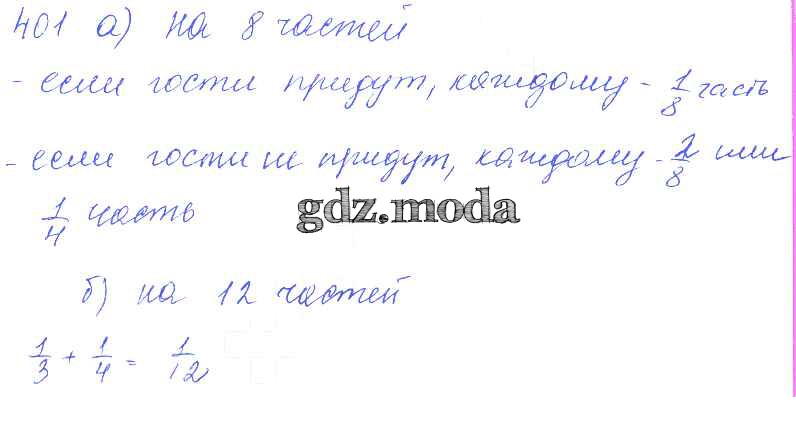 401 а) на 8 частей
- если гости придут, каждому - 1/8 часть
- если гости не придут, каждому - 2/8 или
1/4 часть
gdz.moda
б) на 12 частей
1/3 + 1/4 = 1/12